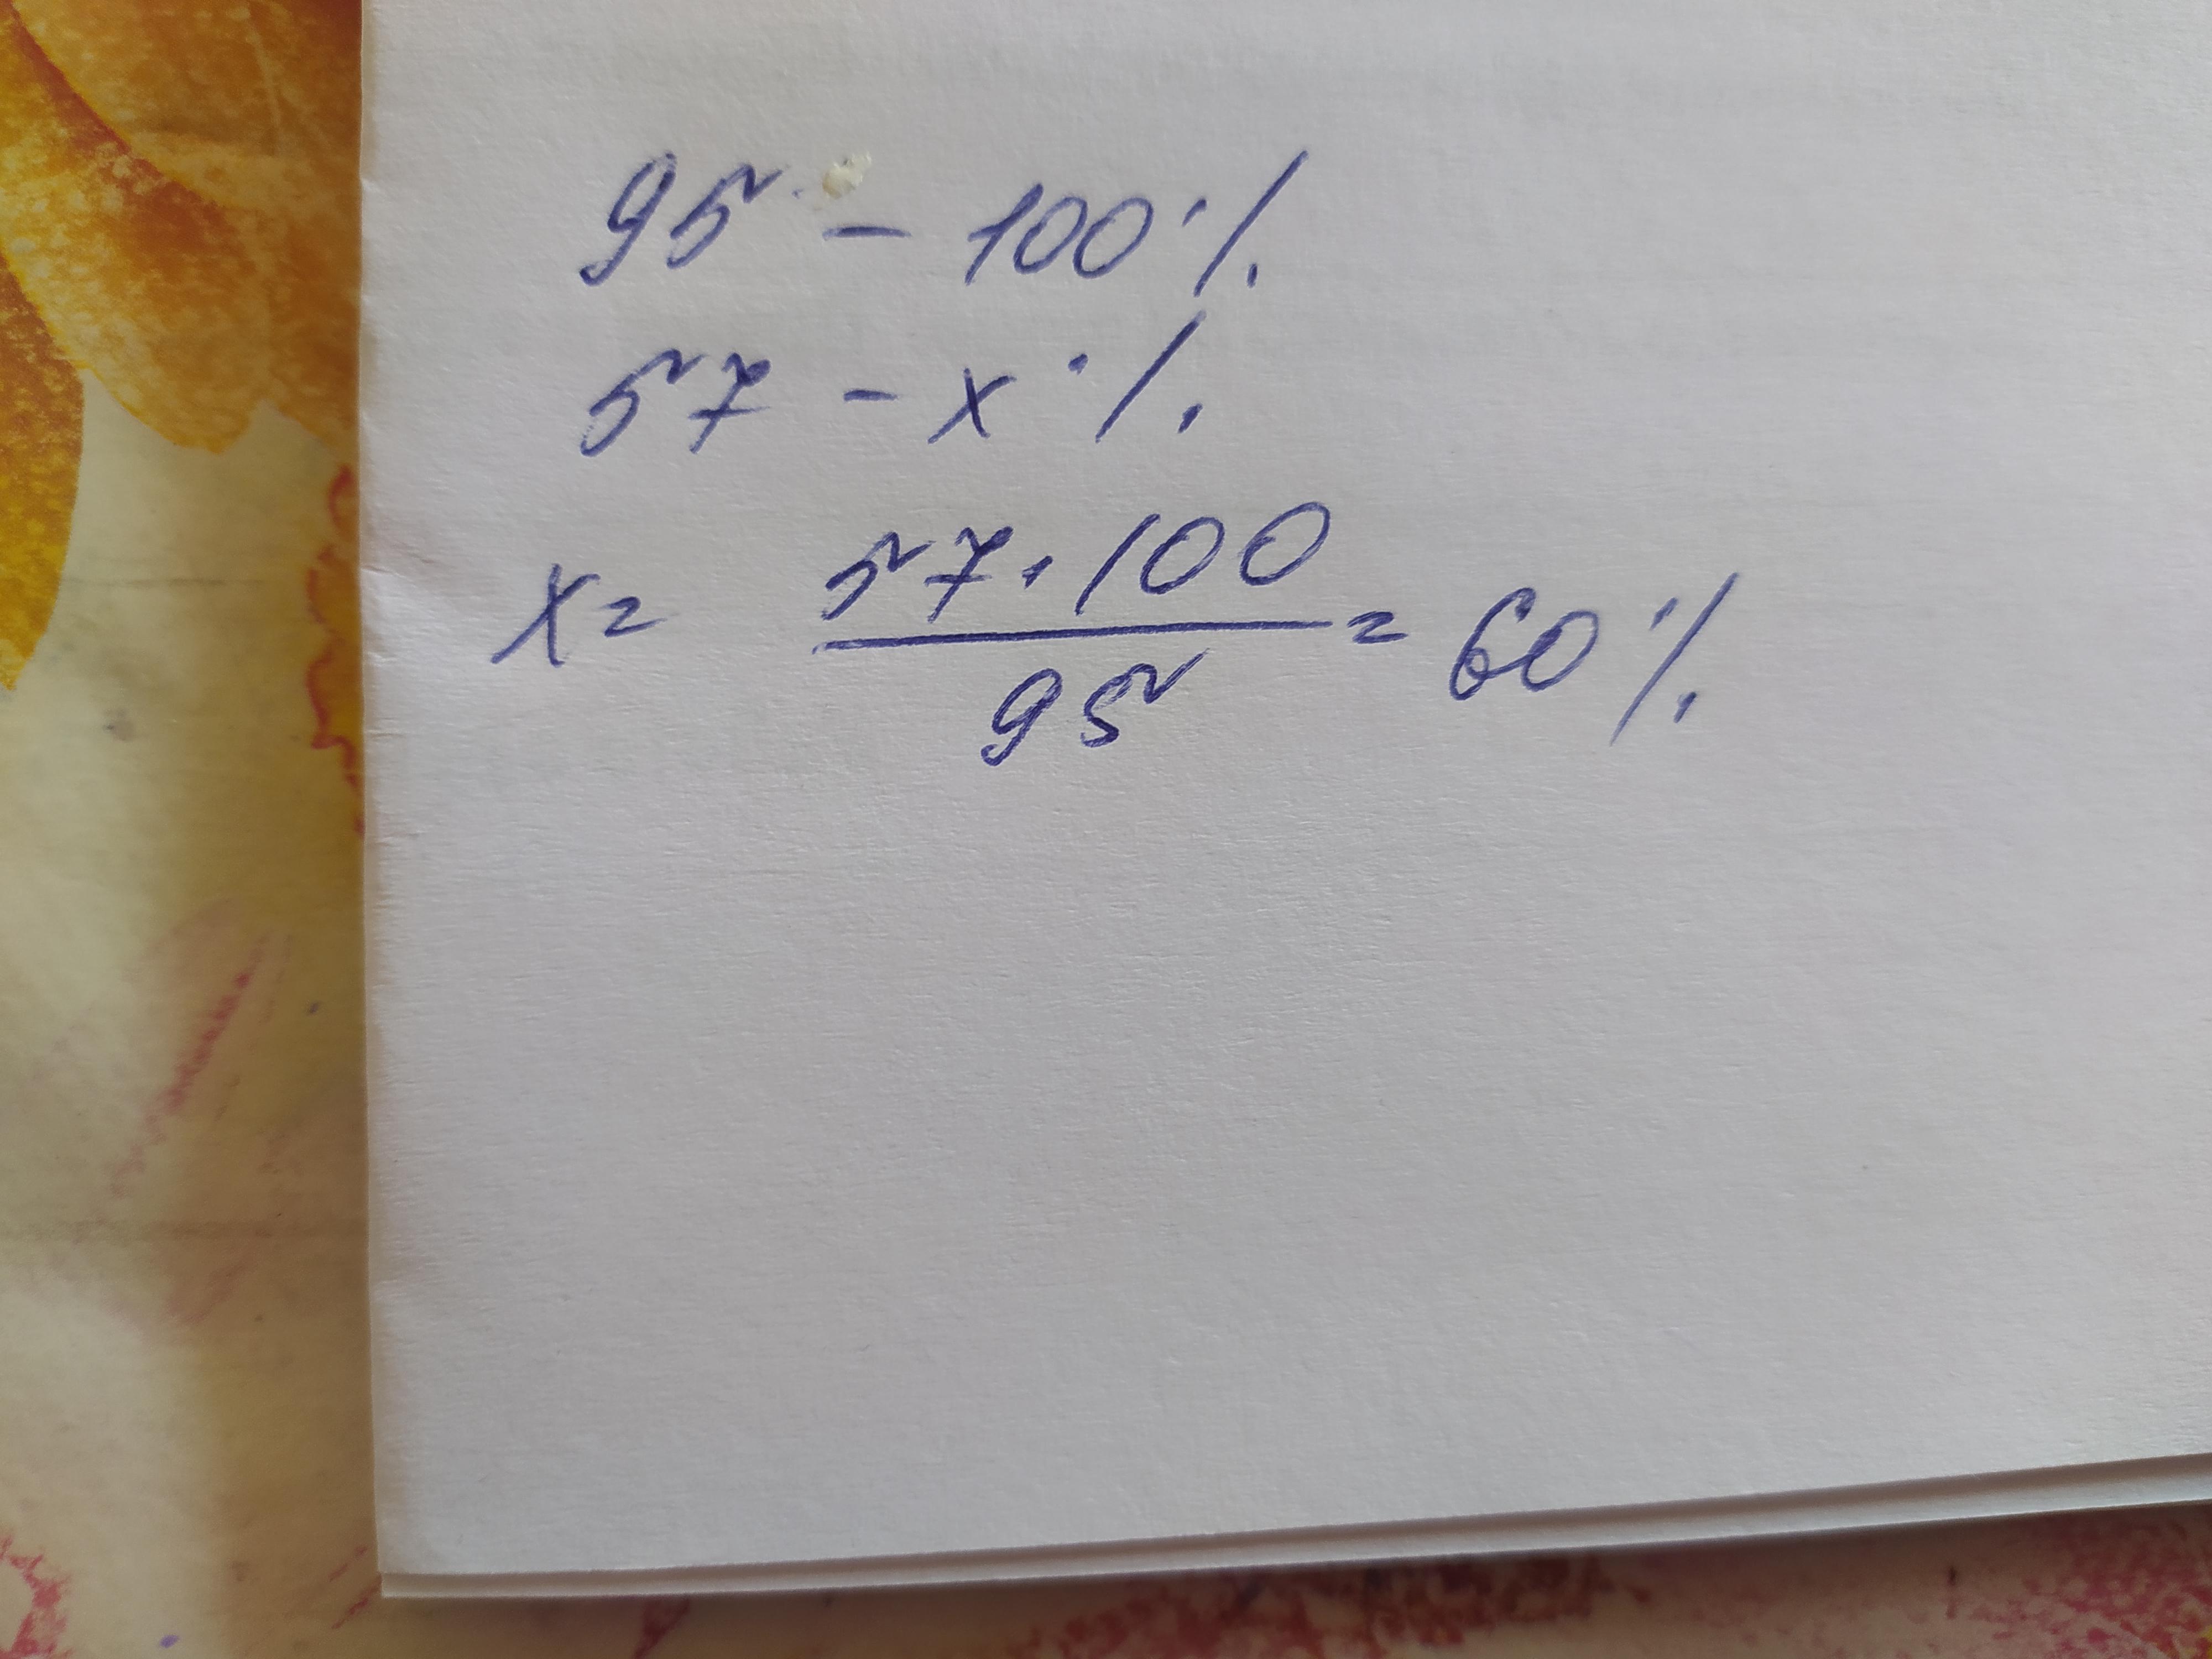 95 - 100%
57 - x%
x = 57 · 100 / 95 = 60%